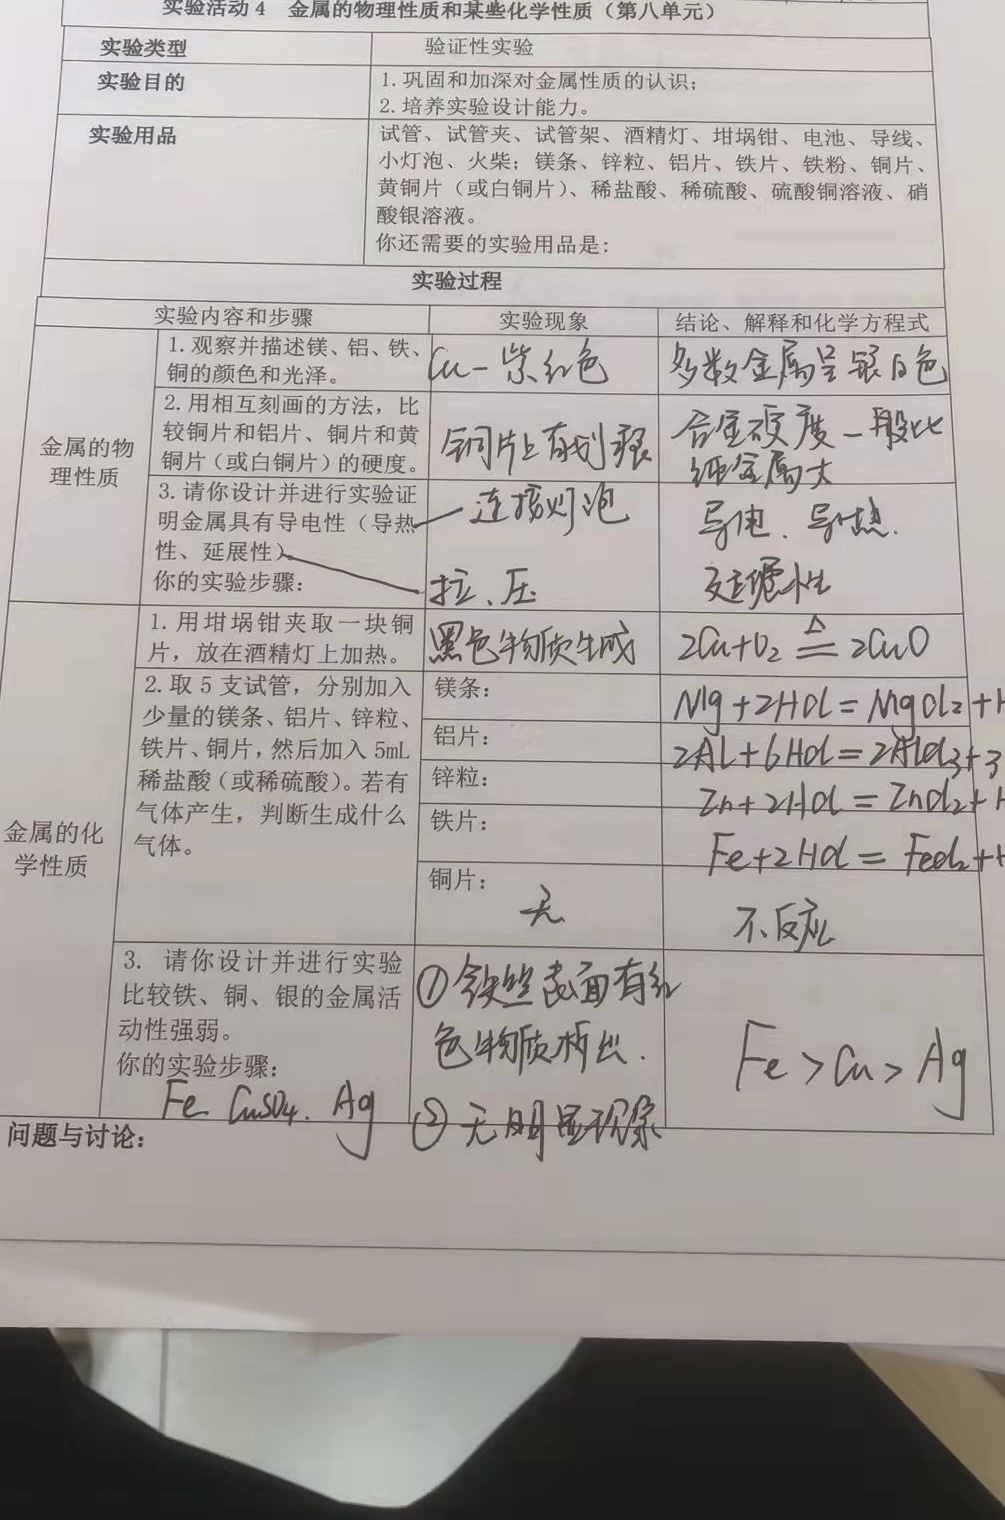 实验活动4 金属的物理性质和某些化学性质（第八单元）
实验类型
验证性实验
实验目的
1.巩固和加深对金属性质的认识；
2.培养实验设计能力。
实验用品
试管、试管夹、试管架、酒精灯、坩埚钳、电池、导线、
小灯泡、火柴；镁条、锌粒、铝片、铁片、铁粉、铜片、
黄铜片（或白铜片）、稀盐酸、稀硫酸、硫酸铜溶液、硝
酸银溶液。
你还需要的实验用品是：
实验过程
实验内容和步骤
实验现象
结论、解释和化学方程式
金属的物
理性质
1.观察并描述镁、铝、铁、
铜的颜色和光泽。
Cu-紫红色
多数金属呈银白色
2.用相互刻画的方法，比
较铜片和铝片、铜片和黄
铜片（或白铜片）的硬度。
铜片上有划痕
合金硬度一般比
纯金属大
3.请你设计并进行实验证
明金属具有导电性（导热
性、延展性）。
你的实验步骤：
连接灯泡
拉、压
导电、导热.
延展性
金属的化
学性质
1.用坩埚钳夹取一块铜
片，放在酒精灯上加热。
黑色物质生成
2Cu+O₂ ≜ 2CuO
2.取5支试管，分别加入
少量的镁条、铝片、锌粒、
铁片、铜片，然后加入5mL
稀盐酸（或稀硫酸）。若有
气体产生，判断生成什么
气体。
镁条：
Mg+2HCl=MgCl₂+H
铝片：
2Al+6HCl=2AlCl₃+3
锌粒：
Zn+2HCl=ZnCl₂+H
铁片：
Fe+2HCl=FeCl₂+H
铜片：
无
不反应
3. 请你设计并进行实验
比较铁、铜、银的金属活
动性强弱。
你的实验步骤：
Fe CuSO₄. Ag
①铁丝表面有红
色物质析出.
②无明显现象
Fe>Cu>Ag
问题与讨论：